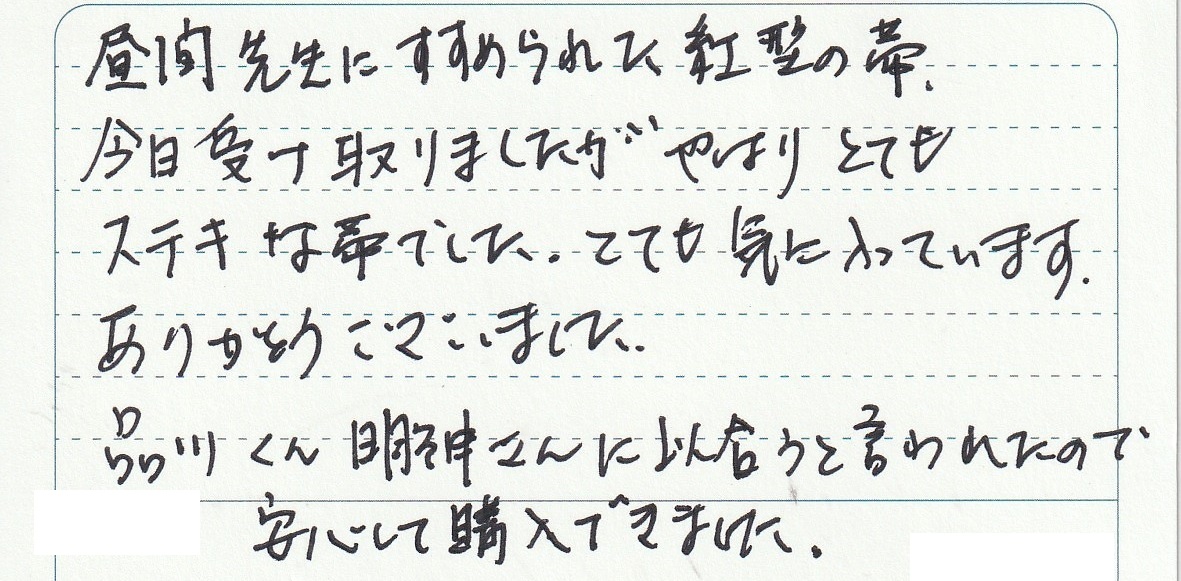 昼間先生にすすめられた紅型の帯.
今日受け取りましたがやはりとても
ステキな帯でした. とても気に入っています.
ありがとうございました.
品川くん 明神さんに似合うと言われたので
安心して購入できました.